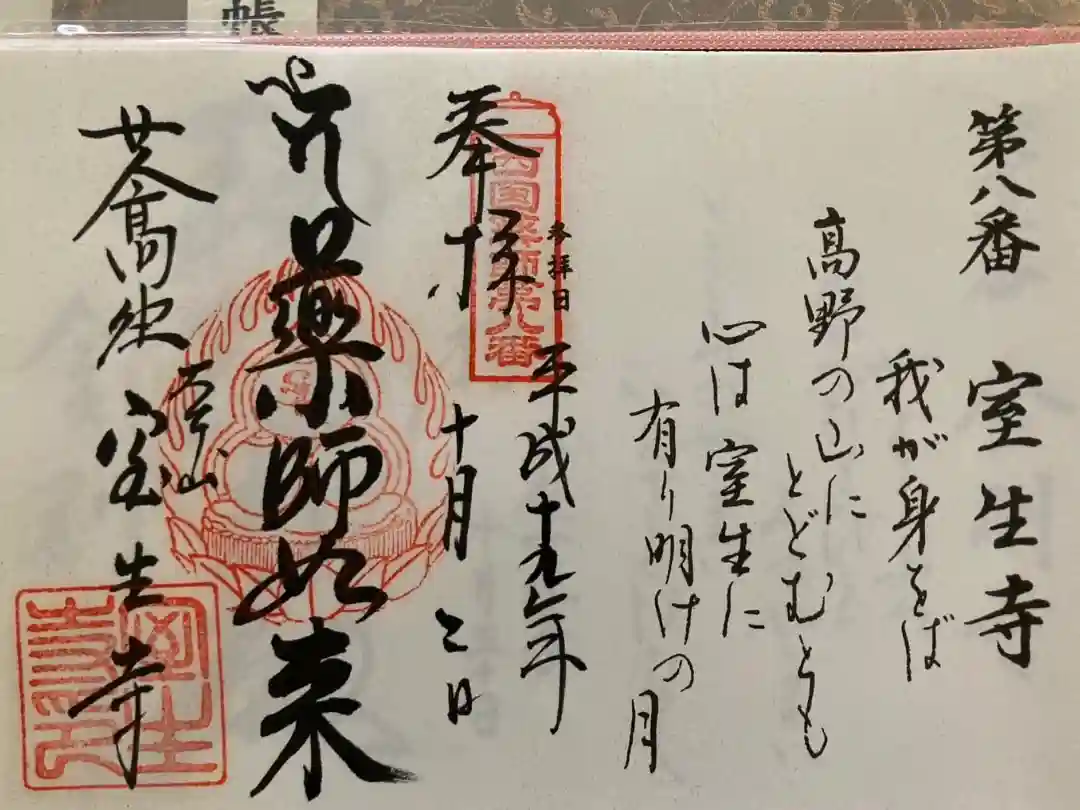 帳
第八番 室生寺
我が身をば
高野の山に
とどむとも
心は室生に
有り明けの月
参拝日
平成十九年
十月二日
西国薬師第八番
奉拝
薬師如来
女人高野
大本山
室生寺
室生
寺印